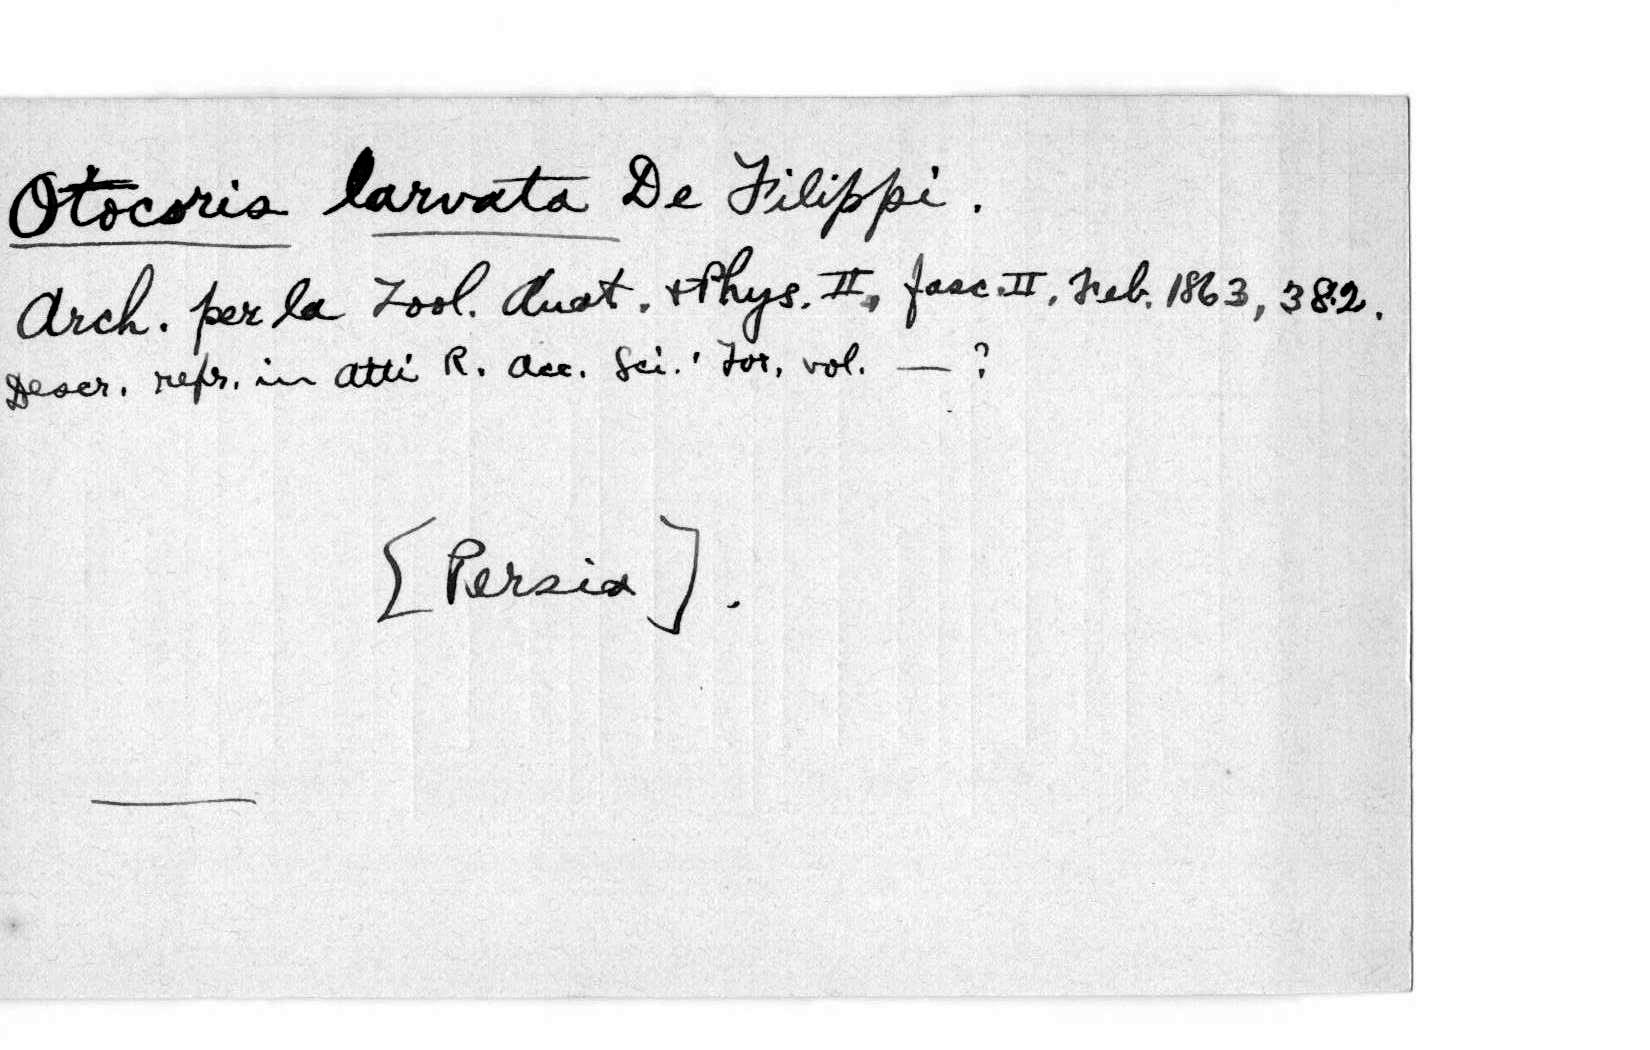 Otocoris larvata De Filippi.
Arch. per la Zool. Anat. + Phys. II, fasc. II, Feb. 1863, 382.
Descr. repr. in Atti R. Acc. Sci. Tor. vol. — ?
[Persia].